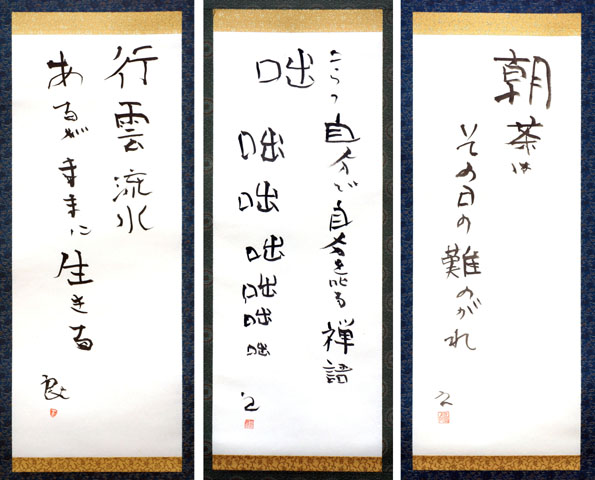 行雲流水
あるがままに生きる
こらっ自分で自分を叱る禅語
咄
咄咄咄咄咄咄
朝茶は
その日の難のがれ